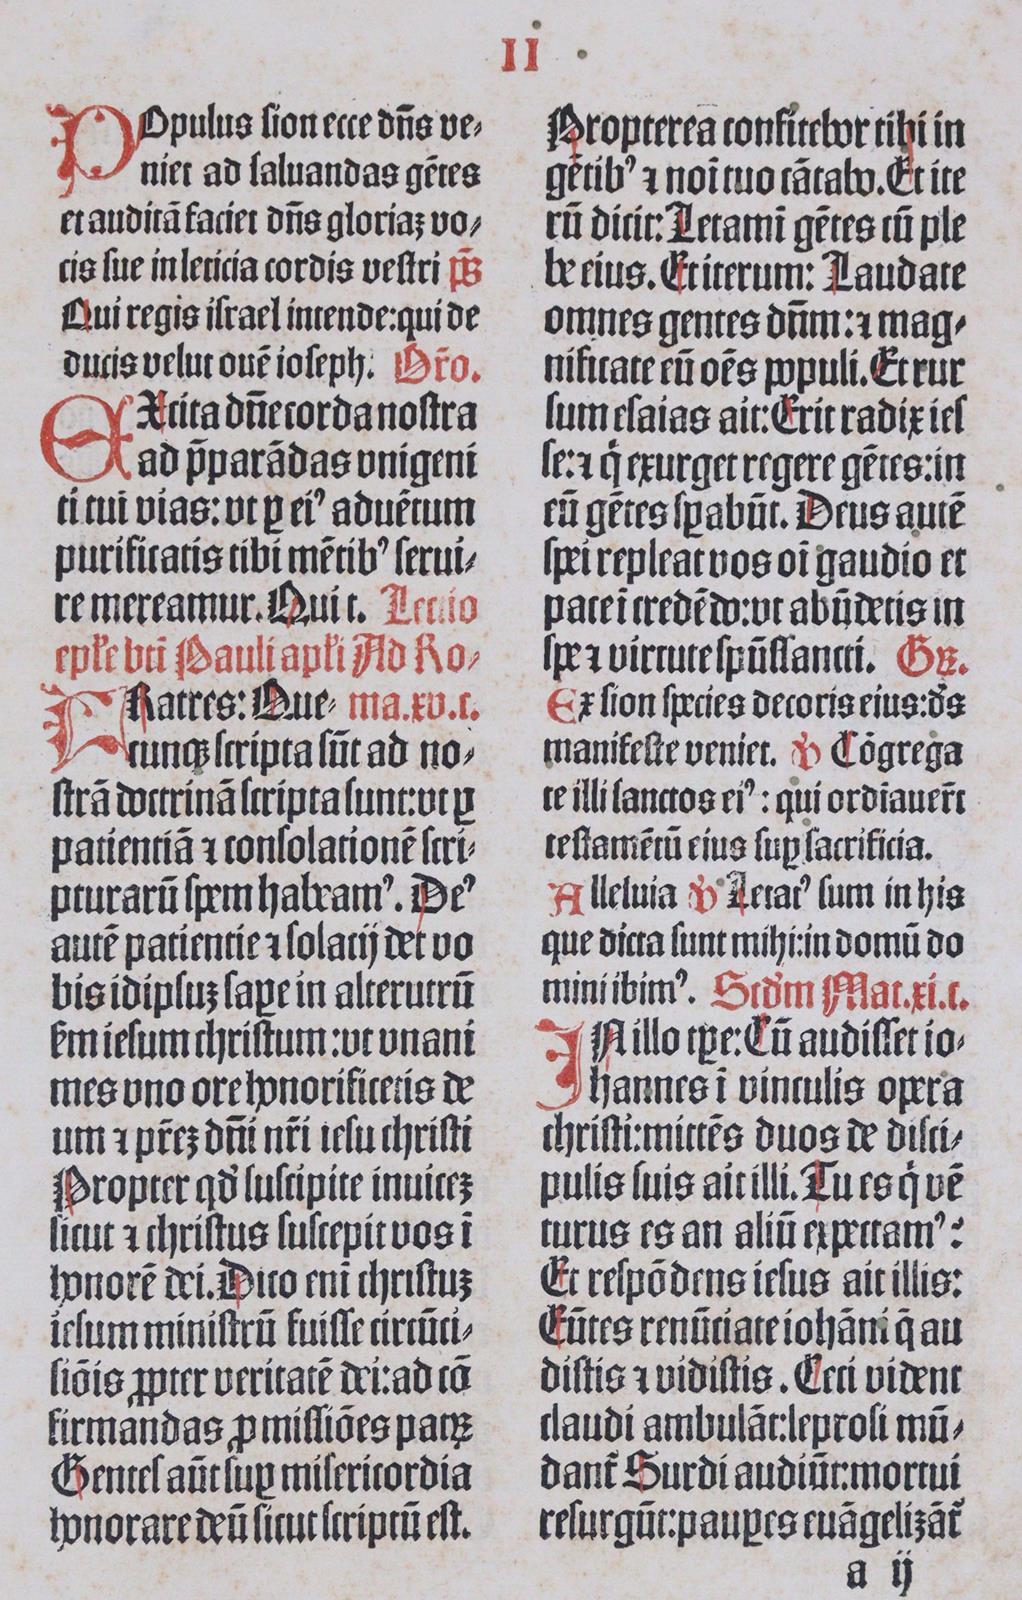 II
POpulus sion ecce dn̄s ve⸗
niet ad saluandas gētes
et auditā faciet dn̄s gloriaꝫ vo⸗
cis sue in leticia cordis vestri p̄s
Qui regis israel intende:qui de
ducis velut ouē ioseph. Or̄o.
EXcita dn̄e corda nostra
ad p̄parādas vnigeni
ti tui vias: vt ꝑ eiꝰ aduētum
purificatis tibi mētibꝰ serui⸗
re mereamur. Qui t. Lectio
epl̄e bt̄i Pauli apl̄i Ad Ro⸗
FRatres: Que⸗ ma.xv.c.
cunqꝫ scripta sūt ad no⸗
strā doctrinā scripta sunt:vt ꝑ
patientiā ⁊ consolationē scri⸗
pturarū spem habeamꝰ. Deꝰ
autē patientie ⁊ solacij det vo
bis idipsuꝫ saꝑe in alterutrū
s̄m iesum christum:vt vnani
mes vno ore honorificetis de
um ⁊ pr̄eꝫ dn̄i nr̄i iesu christi
Propter qd̓ suscipite inuiceꝫ
sicut ⁊ christus suscepit vos ī
honorē dei. Dico enī christuꝫ
iesum ministrū fuisse circūci⸗
siōis ꝓpter veritatē dei:ad cō
firmandas ꝓmissiōes patꝝ
Gentes aūt suꝑ misericordia
honorare deū sicut scriptū est.
Propterea confitebor tibi in
gētibꝰ ⁊ noī tuo cātabo. Et ite
rū dicit: Letamī gētes cū ple
be eius. Et iterum: Laudate
omnes gentes dn̄m:⁊ mag⸗
nificate eū oēs ppopuli. Et rur
sum esaias ait: Erit radix ies
se:⁊ q̇ exurget regere gētes:in
eū gētes sꝑabūt. Deus autē
spei repleat vos oī gaudio et
pace ī credēdo:vt abūdetis in
spe ⁊ virtute spūssancti. Gr̄.
Ex sion species decoris eius:ds̄
manifeste veniet. ℣ Cōgrega
te illi sanctos eiꝰ: qui ordīauer̄t
testamētū eius suꝑ sacrificia.
Alleluia ℣ Letatꝰ sum in his
que dicta sunt mihi:in domū do
mini ibimꝰ. Scd̓m Mat.xi.c.
IN illo tꝑe: Cū audisset io⸗
hannes ī vinculis opera
christi:mittēs duos de disci⸗
pulis suis ait illi. Tu es q̇ vē
turus es an aliū expectamꝰ?
Et respōdens iesus ait illis:
Eūtes renūciate iohāni q̄ au
distis ⁊ vidistis. Ceci vident
claudi ambulāt:leprosi mū⸗
dant̄ Surdi audiūt:mortui
resurgūt:pauꝑes euāgelizāt̄
a ij